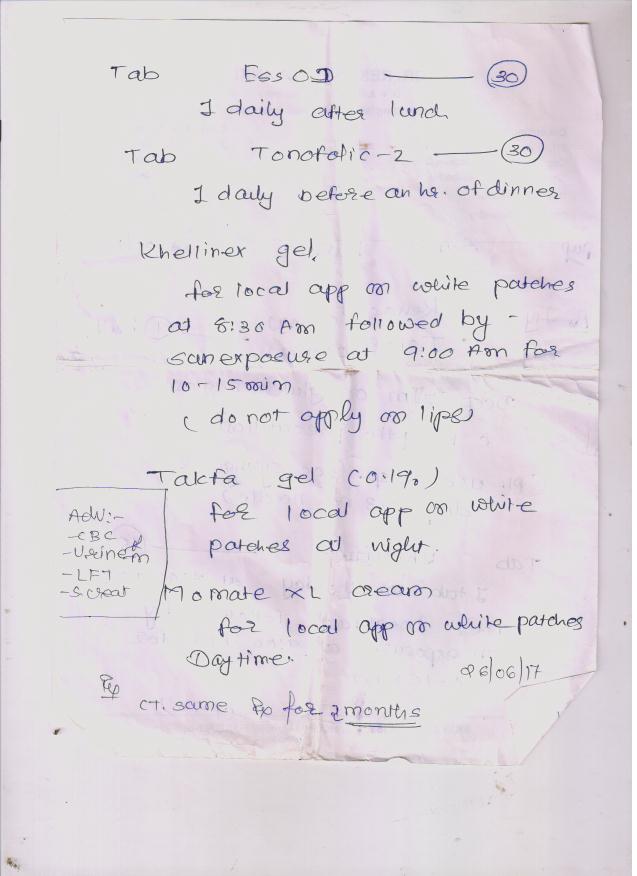 Tab Ess OD — 30
1 daily after lunch
Tab Tonofolic-2 — 30
1 daily before an hr. of dinner
Khellinex gel,
for local app on white patches
at 8:30 Am followed by -
sun exposure at 9:00 Am for
10-15 min
( do not apply on lips)
Takfa gel (0.1%)
for local app on white
patches at night.
Adv:-
-CBC
-Urine R/m
-LFT
-S creat
Momate XL cream
for local app on white patches
Day time.
06/06/17
Rx
CT. same Rx for 2 months